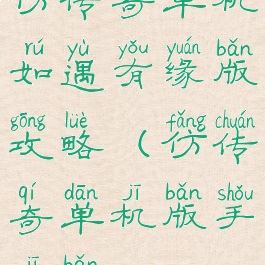 仿传奇单机
rú yù yǒu yuán bǎn
如遇有缘版
gōng lüè fǎng chuán
攻略（仿传
qí dān jī bǎn shǒu
奇单机版手
jī bǎn